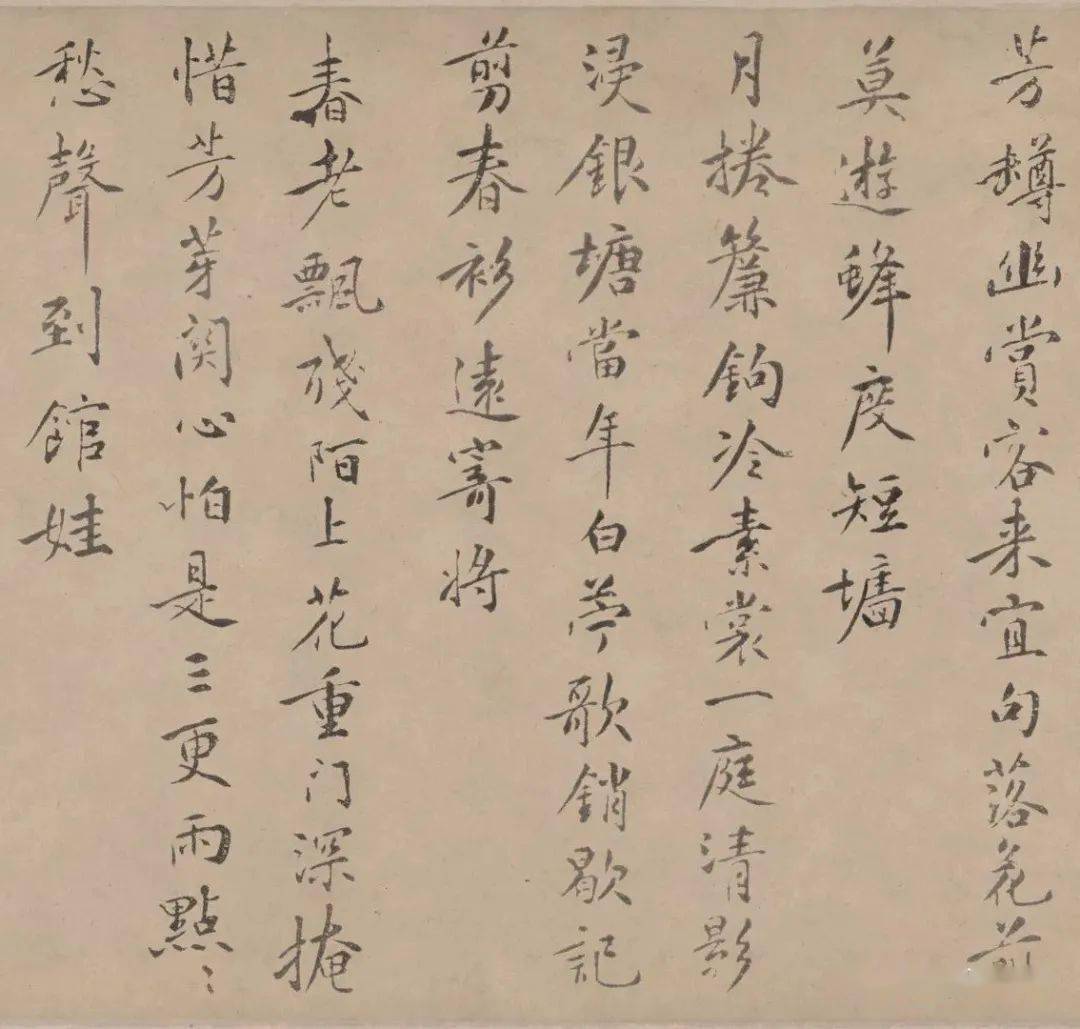 芳樽幽賞客来宜句落花前
莫遊蜂度短墻
月捲簾鉤冷素裳一庭清影
浸銀塘當年白苧歌銷歇記
剪春衫遠寄將
春老飄殘陌上花重门深掩
惜芳芽関心怕是三更雨點〻
愁聲到館娃